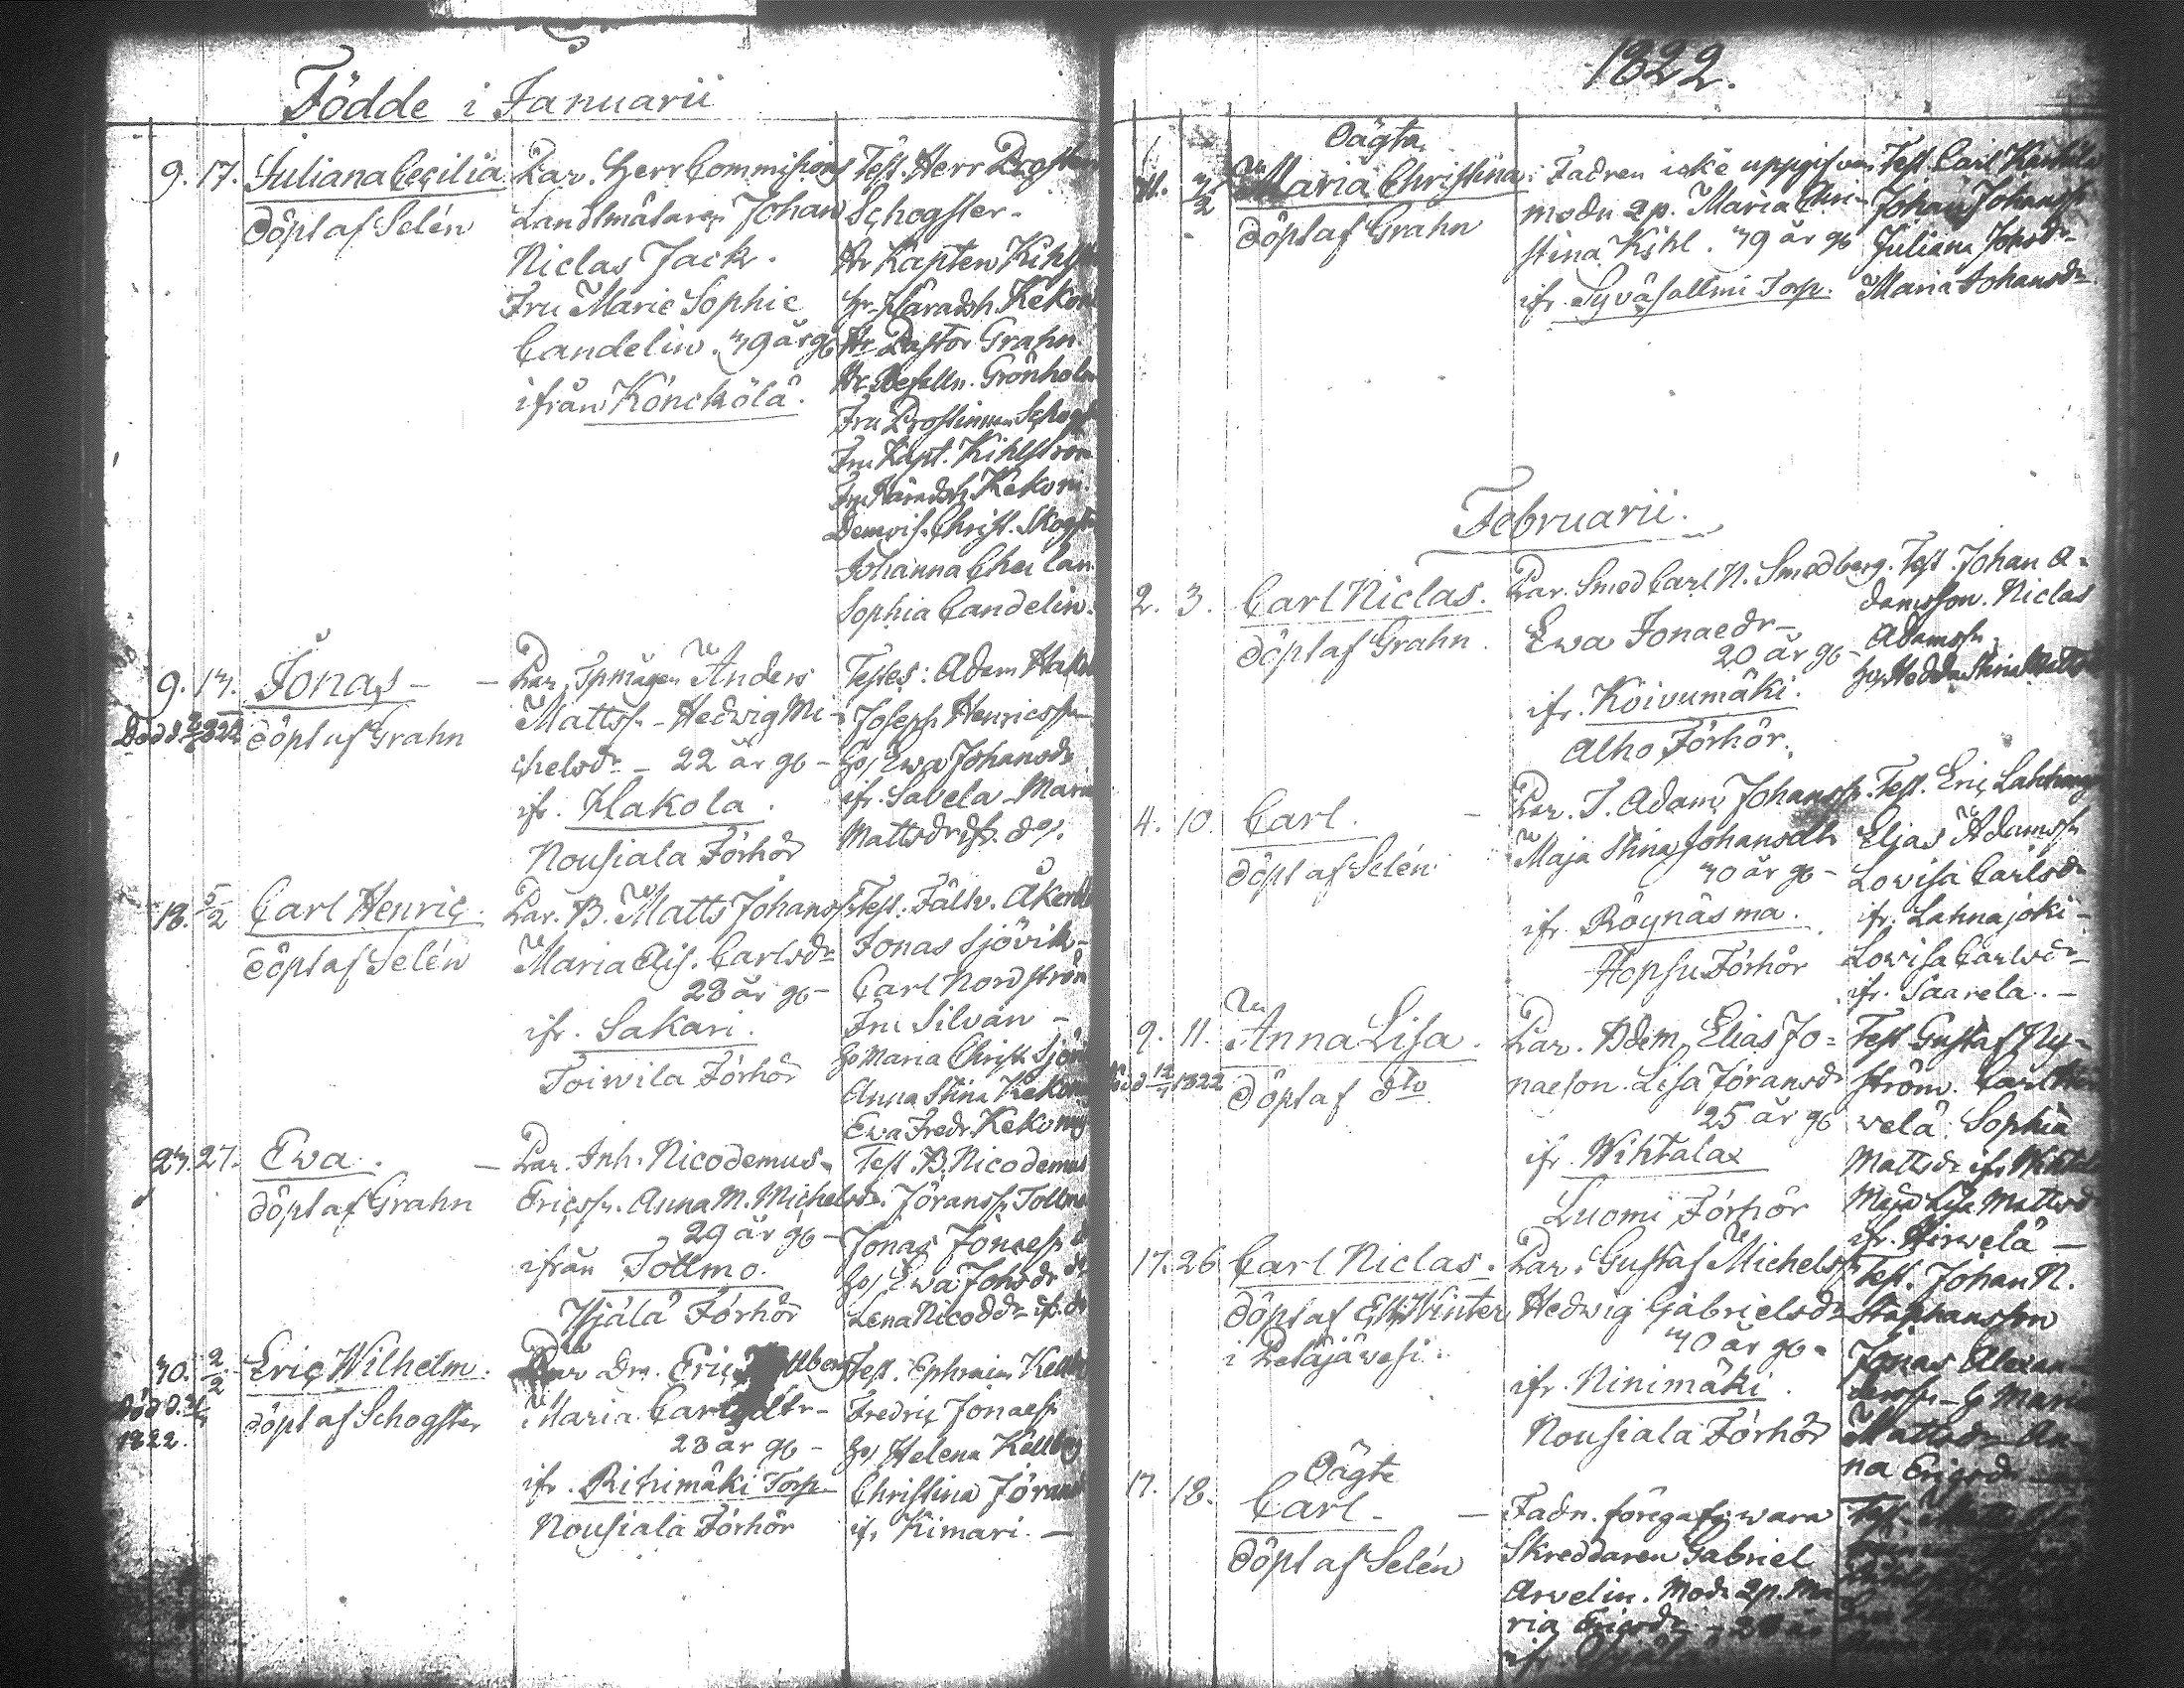 Födde i Januarii
9. 17. Juliana Cecilia
döpt af Selén
Par. Herr Commissions
Landtmätaren Johan
Niclas Jack.
Fru Marie Sophie
Candelin. 39 år gl
ifrån Könckölä.
Test. Herr Prosten
Schogster.
Hr Kapten Kihlstr
Hr. Häradsh. Kekoni
Hr Pastor Grahn
Hr Befalln. Grönholm
Fru Prostinnan Schogst
Fru Kapt. Kihlström
Fru Häradsh. Kekoni
Demois. Christ. Skogst
Johanna
Sophia Candelin.
9. 13. Jonas
Död d. 1822
döpt af Grahn
Par. Spmågen Anders
Mattss. Hedwig Mi-
chelsdr 22 år gl
ifr. Hakola.
Nousiala Förhör
Testes: Adam Hakol
Joseph Henricss
Hu Ewa Johansdr
ifr. Savela Maria
Mattsdr ifr. do.
18. 5/2 Carl Henric.
döpt af Selén
Par. B. Matts Johanss
Maria Elis. Carlsdr
28 år gl
ifr. Sakari.
Toiwila Förhör
Test. Fältv. Åkerbl
Jonas Sjövik
Carl Nordström
Fru Silvan
Hu Maria Christ. Sjöv
Anna Stina Kekoni
Ewa Fredr. Kekoni
23. 27. Ewa.
döpt af Grahn
Par. Inh. Nicodemus
Ericss. Anna M. Michelsdr
29 år gl
ifrån Töllmo.
Ylijälä Förhör
Test. B. Nicodemus
Jöranss Tollmo
Jonas Jonaess
Hu Ewa Johsdr
Lena Nicoddr ifr. do
30. 2/2 Eric Wilhelm.
Död d.
1822.
döpt af Schogster
Par Dr. Eric
Maria Carlsdtr
23 år gl
ifr. Rihimäki Torp
Nousiala Förhör
Test. Ephraim Kellb
Fredric Jonaess
Hu Helena Kellberg
Christina Jörans
ifr Kimari.
1822.
Oägta
31. 3/2 Maria Christina
döpt af Grahn
Fadren icke uppgifven
modn 2p. Maria Chri-
stina Kihl. 39 år gl
ifr. Syväsallmi Torp.
Test. Carl Kauhala
Johan Johanss
Juliana Johsdr
Maria Johansdr
Februarii.
2. 3. Carl Niclas.
döpt af Grahn.
Par. Smed Carl N. Smedberg.
Ewa Jonaedr
20 år gl
ifr. Koivumäki.
Alho Förhör.
Test. Johan A-
damsson. Niclas
Adamss.
Hu Hedda Stina Matts
4. 10. Carl.
döpt af Selén
Par. T. Adam Johanss.
Maja Stina Johansdtr
30 år gl
ifr. Röynäsma.
Hopsu Förhör
Test. Eric Lahnang
Elias Adamss
Lovisa Carlsdr
ifr. Lahnajoki
Lovisa Carlsdr
ifr. Saarela.
9. 11. Anna Lisa.
Död 12 1822
döpt af dto
Par. Bdem. Elias Jo-
naeson. Lisa Jöransdr
25 år gl
ifr. Wihtalax
Luomi Förhör
Test Gustaf Ny-
ström. Carl Hir
welä. Sophia
Mattsdr ifr Wihtala
Maja Lisa Mattsd
ifr. Hirwelä
17. 26 Carl Niclas.
döpt af E. W. Winter
i Petäjäwesi.
Par. Gustaf Michelss
Hedwig Gabrielsdr
30 år gl
ifr. Ninimäki.
Nousiala Förhör
Test. Johan N.
Stephansson
Jonas Alexan-
derss. Hu Maria
Mattsdr An-
na Ericsdr
Oägte
17. 18. Carl.
döpt af Selén
Fadn. föregafs wara
Skreddaren Gabriel
Arvelin. Modn 2p. Ma
ria Ericsdr 28 år
ifr.
Test.